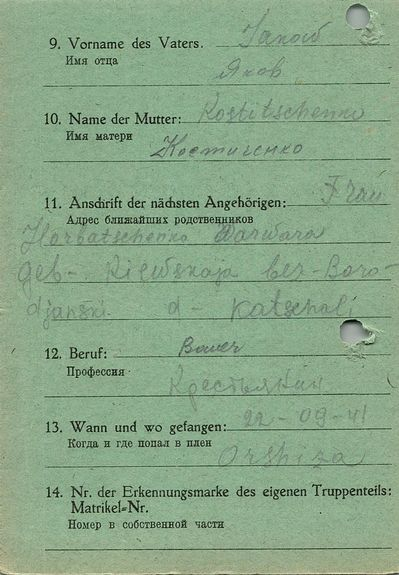 9. Vorname des Vaters. Jakob
Имя отца
Яков
10. Name der Mutter: Kostitschenko
Имя матери
Костиченко
11. Anschrift der nächsten Angehörigen: Frau
Адрес ближайших родственников
Horbatschenko Warwara
geb- Kiewskaja bez-Boro-
djanski d- Katschali
12. Beruf: Bauer
Профессия
Крестьянин
13. Wann und wo gefangen: 22-09-41
Когда и где попал в плен
Orshiza
14. Nr. der Erkennungsmarke des eigenen Truppenteils:
Matrikel=Nr.
Номер в собственной части